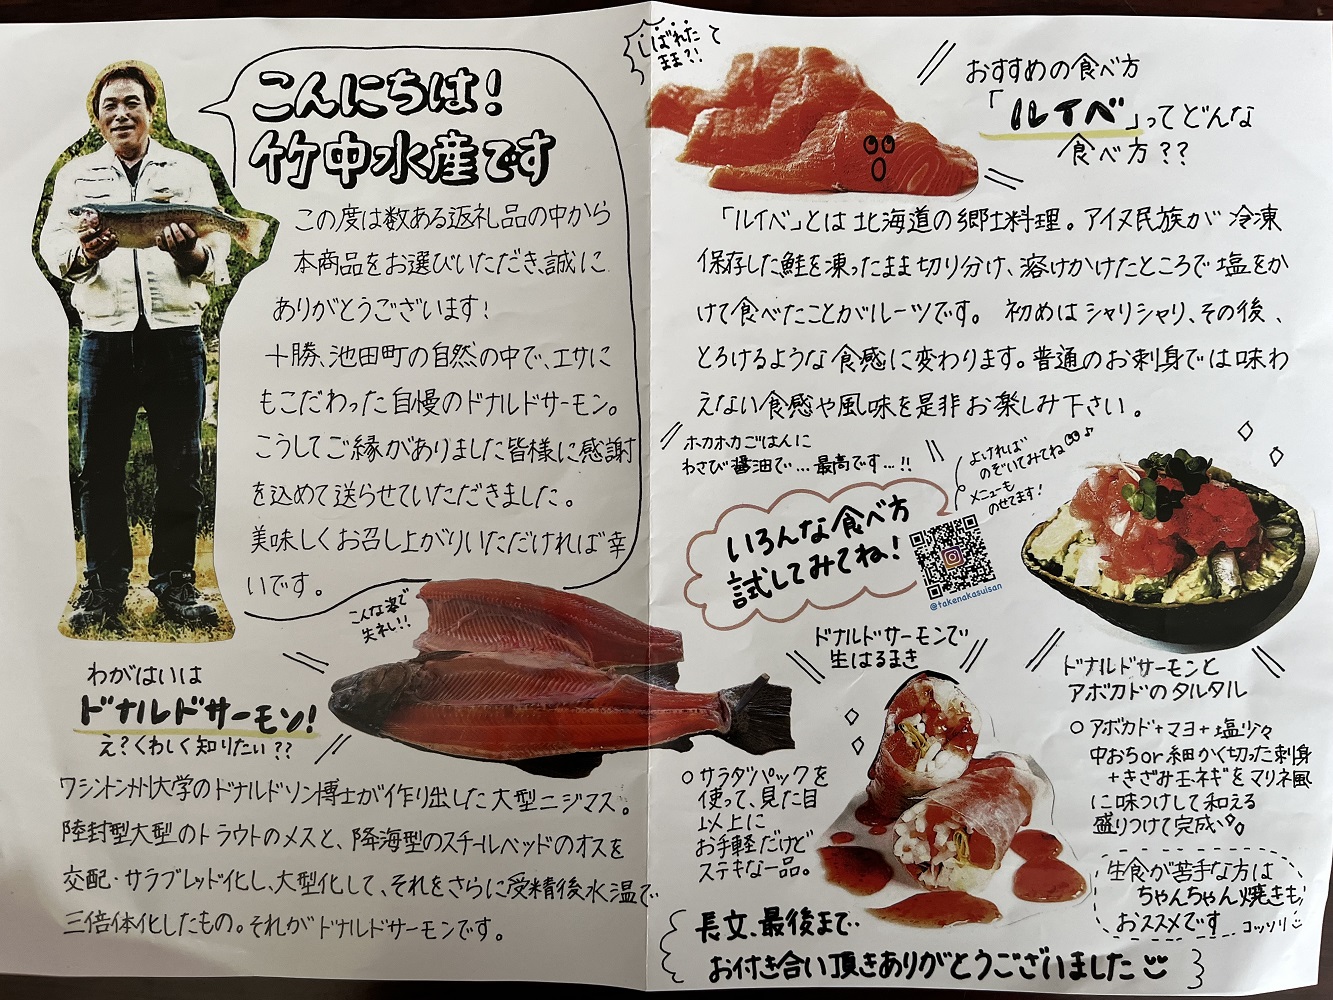 こんにちは！
竹中水産です
この度は数ある返礼品の中から
本商品をお選びいただき、誠に
ありがとうございます！
十勝、池田町の自然の中で、エサに
もこだわった自慢のドナルドサーモン。
こうしてご縁がありました皆様に感謝
を込めて送らせていただきました。
美味しくお召し上がりいただければ幸
いです。
こんな姿で
失礼!!
わがはいは
ドナルドサーモン！
え？くわしく知りたい??
ワシントン州大学のドナルドソン博士が作り出した大型ニジマス。
陸封型大型のトラウトのメスと、降海型のスチールヘッドのオスを
交配・サラブレッド化し、大型化して、それをさらに受精後水温で
三倍体化したもの。それがドナルドサーモンです。
しばれた
まま?!
て
おすすめの食べ方
「ルイベ」ってどんな
食べ方??
「ルイベ」とは北海道の郷土料理。アイヌ民族が冷凍
保存した鮭を凍ったまま切り分け、溶けかけたところで塩をか
けて食べたことがルーツです。初めはシャリシャリ、その後、
とろけるような食感に変わります。普通のお刺身では味わ
えない食感や風味を是非お楽しみ下さい。
ホカホカごはんに
わさび醤油で…最高です…!!
よければ
のぞいてみてね♪
メニューも
のせてます！
いろんな食べ方
試してみてね！
@takenakasuisan
ドナルドサーモンで
生はるまき
○サラダパックを
使って、見た目
以上に
お手軽だけど
ステキな一品。
ドナルドサーモンと
アボカドのタルタル
○アボカド+マヨ+塩少々
中おちor細かく切った刺身
+きざみ玉ネギをマリネ風
に味つけして和える
盛りつけて完成
生食が苦手な方は
ちゃんちゃん焼きも
おススメです コッソリ
長文、最後まで
お付き合い頂きありがとうございました